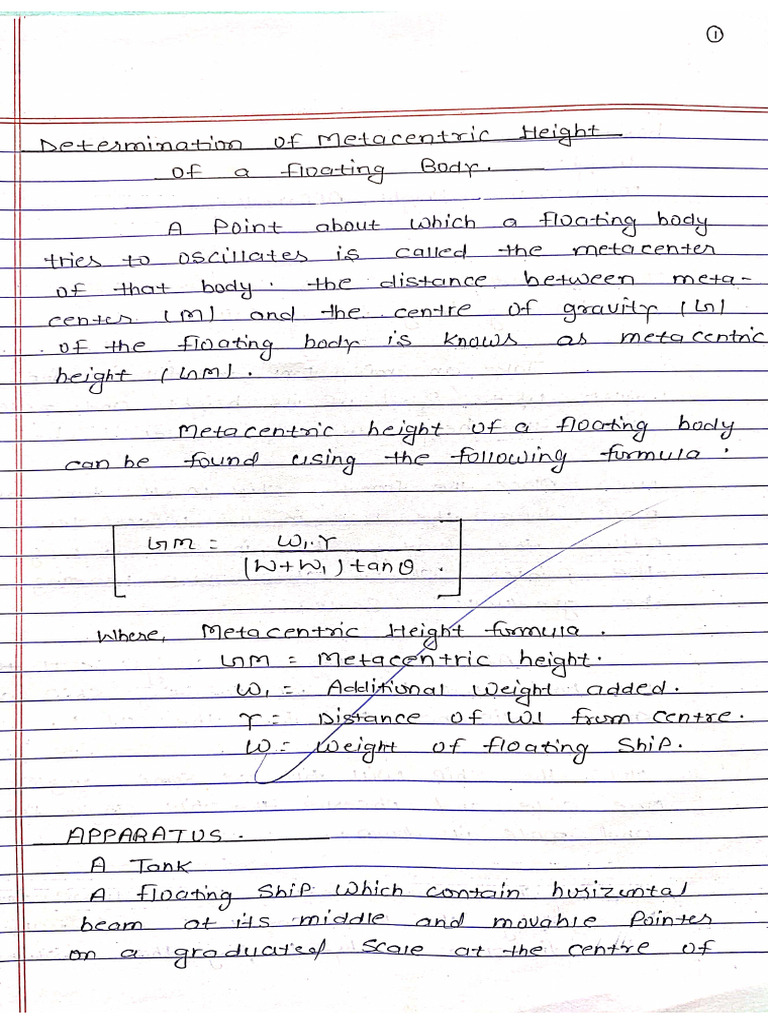 ①
Determination of Metacentric Height
of a floating Body.
A Point about which a floating body
tries to oscillates is called the metacenter
of that body. the distance between meta-
center (M) and the centre of gravity (G)
of the floating body is knows as metacentric
height (GM).
Metacentric height of a floating body
can be found using the following formula.
GM = W1.r / (W+W1) tanθ.
Where, Metacentric Height formula.
GM = Metacentric height.
W1 = Additional Weight added.
r = Distance of W1 from centre.
W = Weight of floating Ship.
APPARATUS.
A Tank
A floating Ship Which contain horizontal
beam at its middle and movable Pointer
on a graduated Scale at the centre of